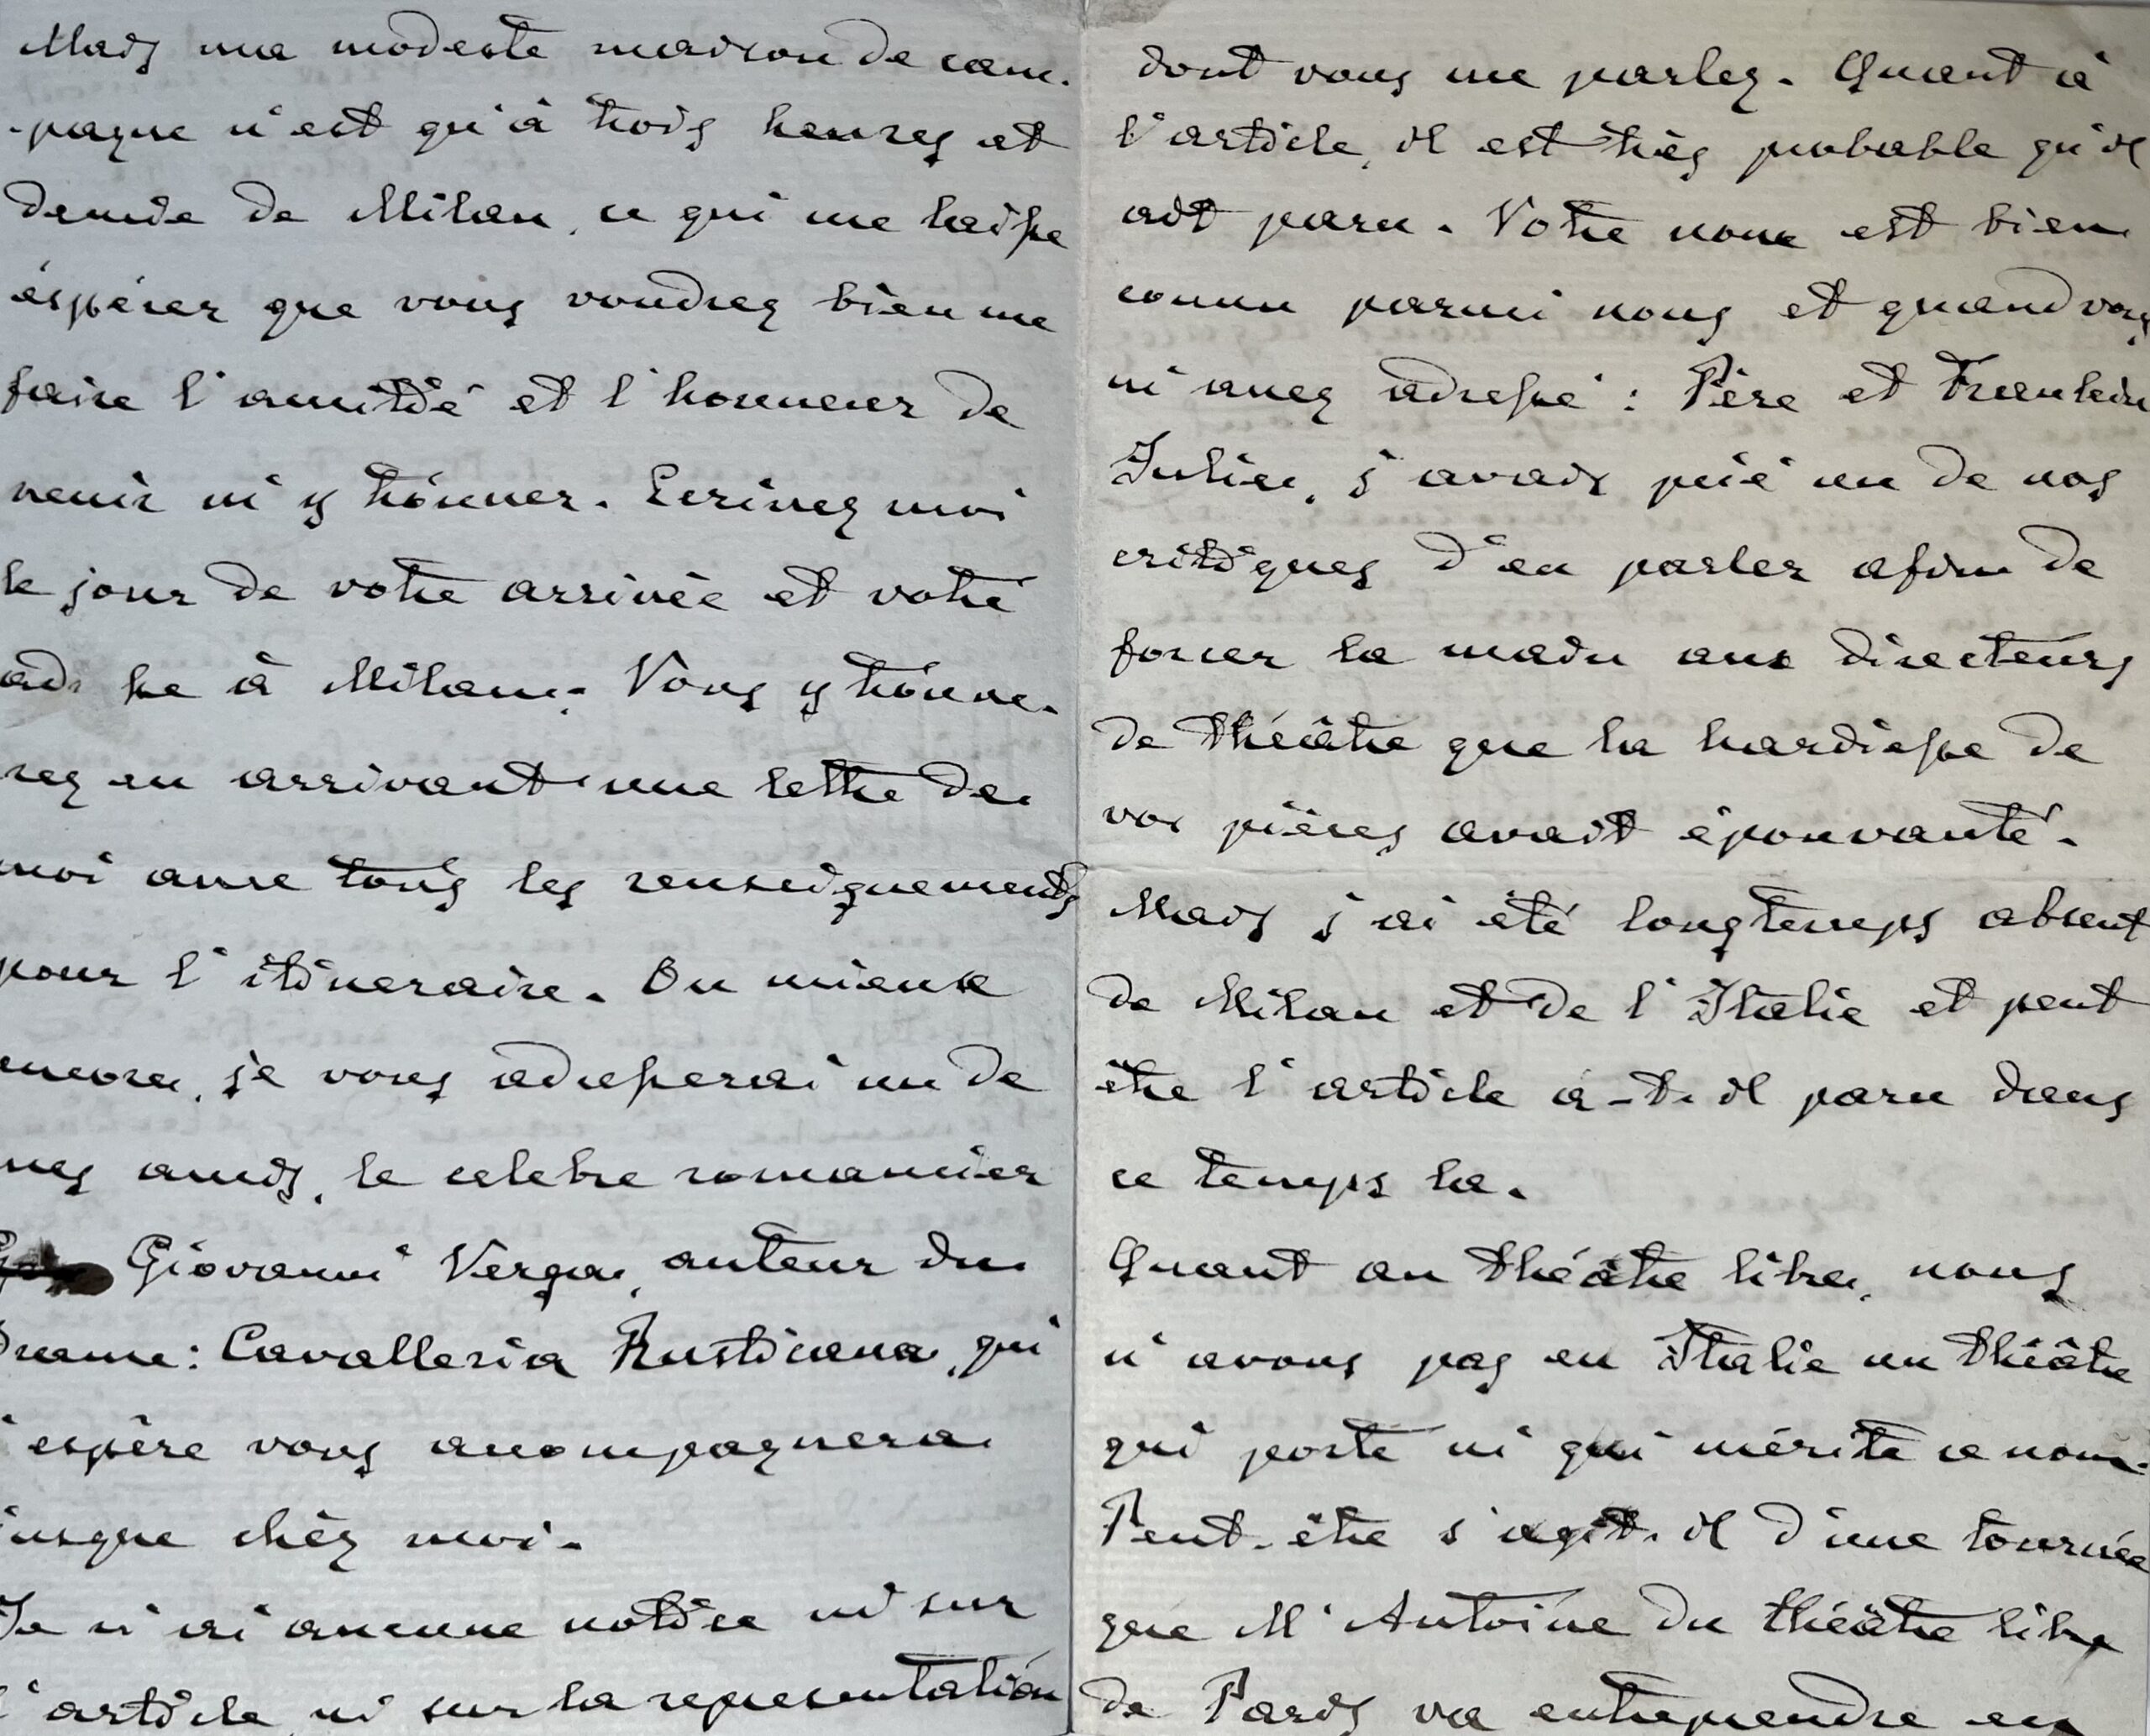 Mais ma modeste maison de cam-
-pagne n'est qu'à trois heures et
demie de Milan, ce qui me laisse
éspérer que vous voudrez bien me
faire l'amitié et l'honneur de
venir m'y trouver. Ecrivez moi
le jour de votre arrivée et votre
à Milan. Vous y trouve-
rez en arrivant une lettre de
moi avec tous les renseignements
pour l'itineraire. Ou mieux
encore, je vous adresserai un de
mes amis, le celebre romancier
Giovanni Verga, auteur du
drame: Cavalleria Rusticana, qui
j'espère vous accompagnera
jusque chèz moi.
Je n'ai aucune notice ni sur
l'article, ni sur la representation
dont vous me parlez. Quant à
l'article, il est très probable qu'il
ait paru. Votre nom est bien
connu parmi nous et quand vous
m'avez adressé: Père et Fraulein
Julie, j'avais prié un de nos
critiques d'en parler afin de
forcer la main aux directeurs
de théâtre que la hardiesse de
vos pièces avait épouvanté.
Mais j'ai été longtemps absent
de Milan et de l'Italie et peut
être l'article a-t-il paru dans
ce temps la.
Quant au théâtre libre, nous
n'avons pas en Italie un théâtre
qui porte ni qui mérite ce nom.
Peut-être s'agit-il d'une tournée
que M' Antoine du théâtre libre
de Paris va entreprendre en